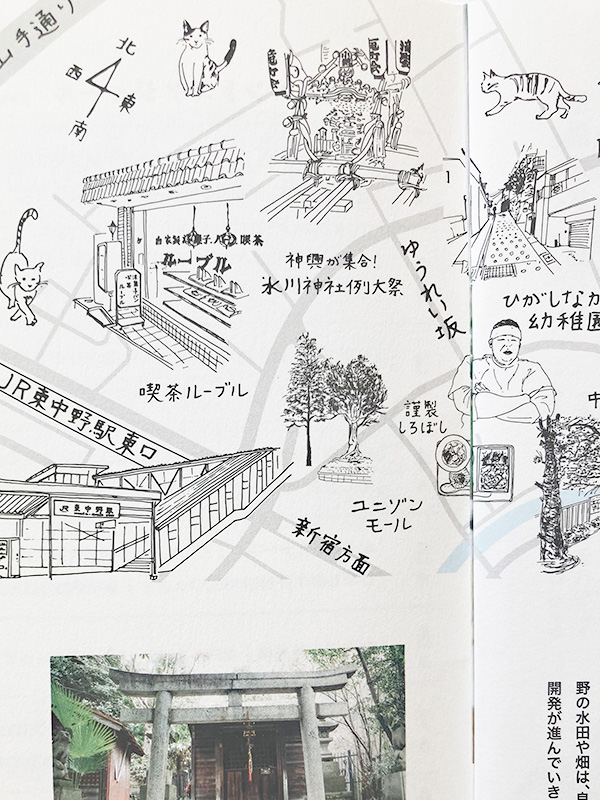 山手通り
北
西
東
南
自家製洋菓子 喫茶
ルーブル
神輿が集合!
氷川神社例大祭
ゆうれい坂
ひがしなか
幼稚園
喫茶ルーブル
謹製
しろぼし
JR東中野駅東口
JR東中野駅
ユニゾン
モール
新宿方面
中
野の水田や畑は、
開発が進んでいき